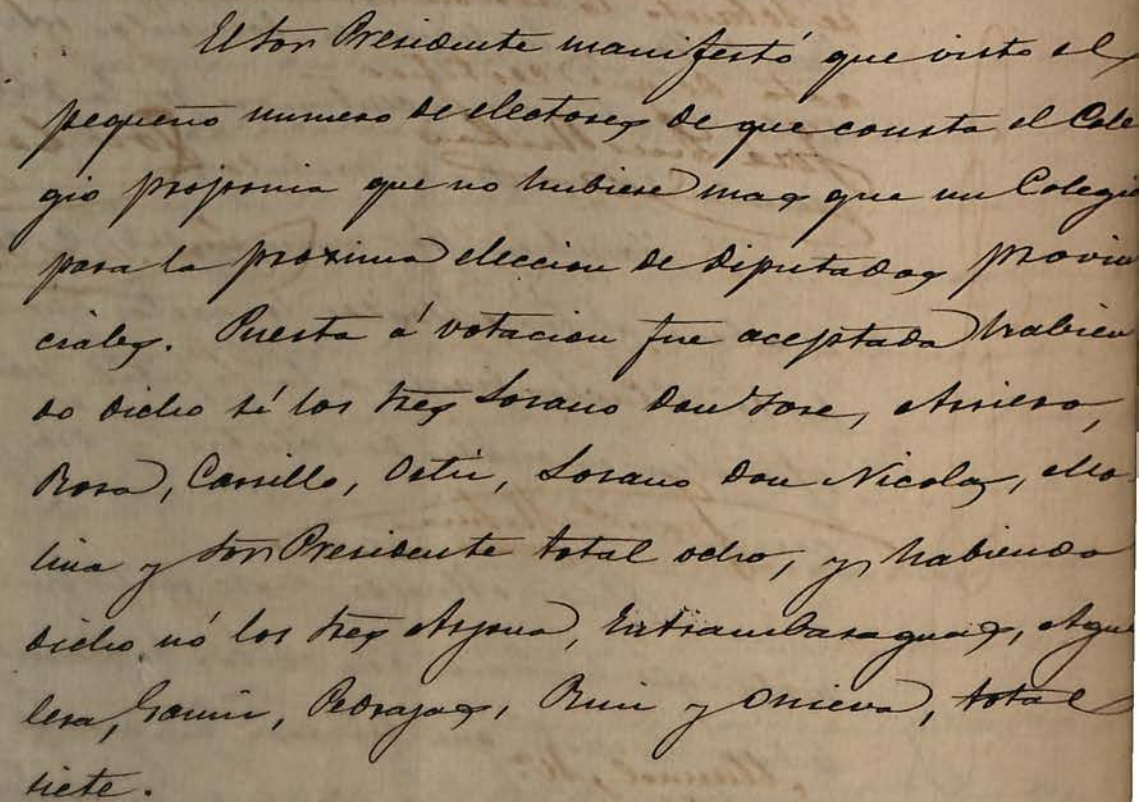 El Sor Presidente manifestó que visto el
pequeño numero de electores de que consta el Cole
gio proponia que no hubiese mas que un Colegio
para la proxima eleccion de diputados provin
ciales. Puesta á votacion fue aceptada habien
do dicho sí los Sres Lozano Don Jose, Arriero,
Rosa, Carrillo, Ortiz, Lozano Don Nicolas, Mo
lina y Sor Presidente total ocho, y habiendo
dicho nó los Sres Arjona, Entrambasaguas, Agui
lera, Pedrajas, Ruiz y Onieva, total
siete.